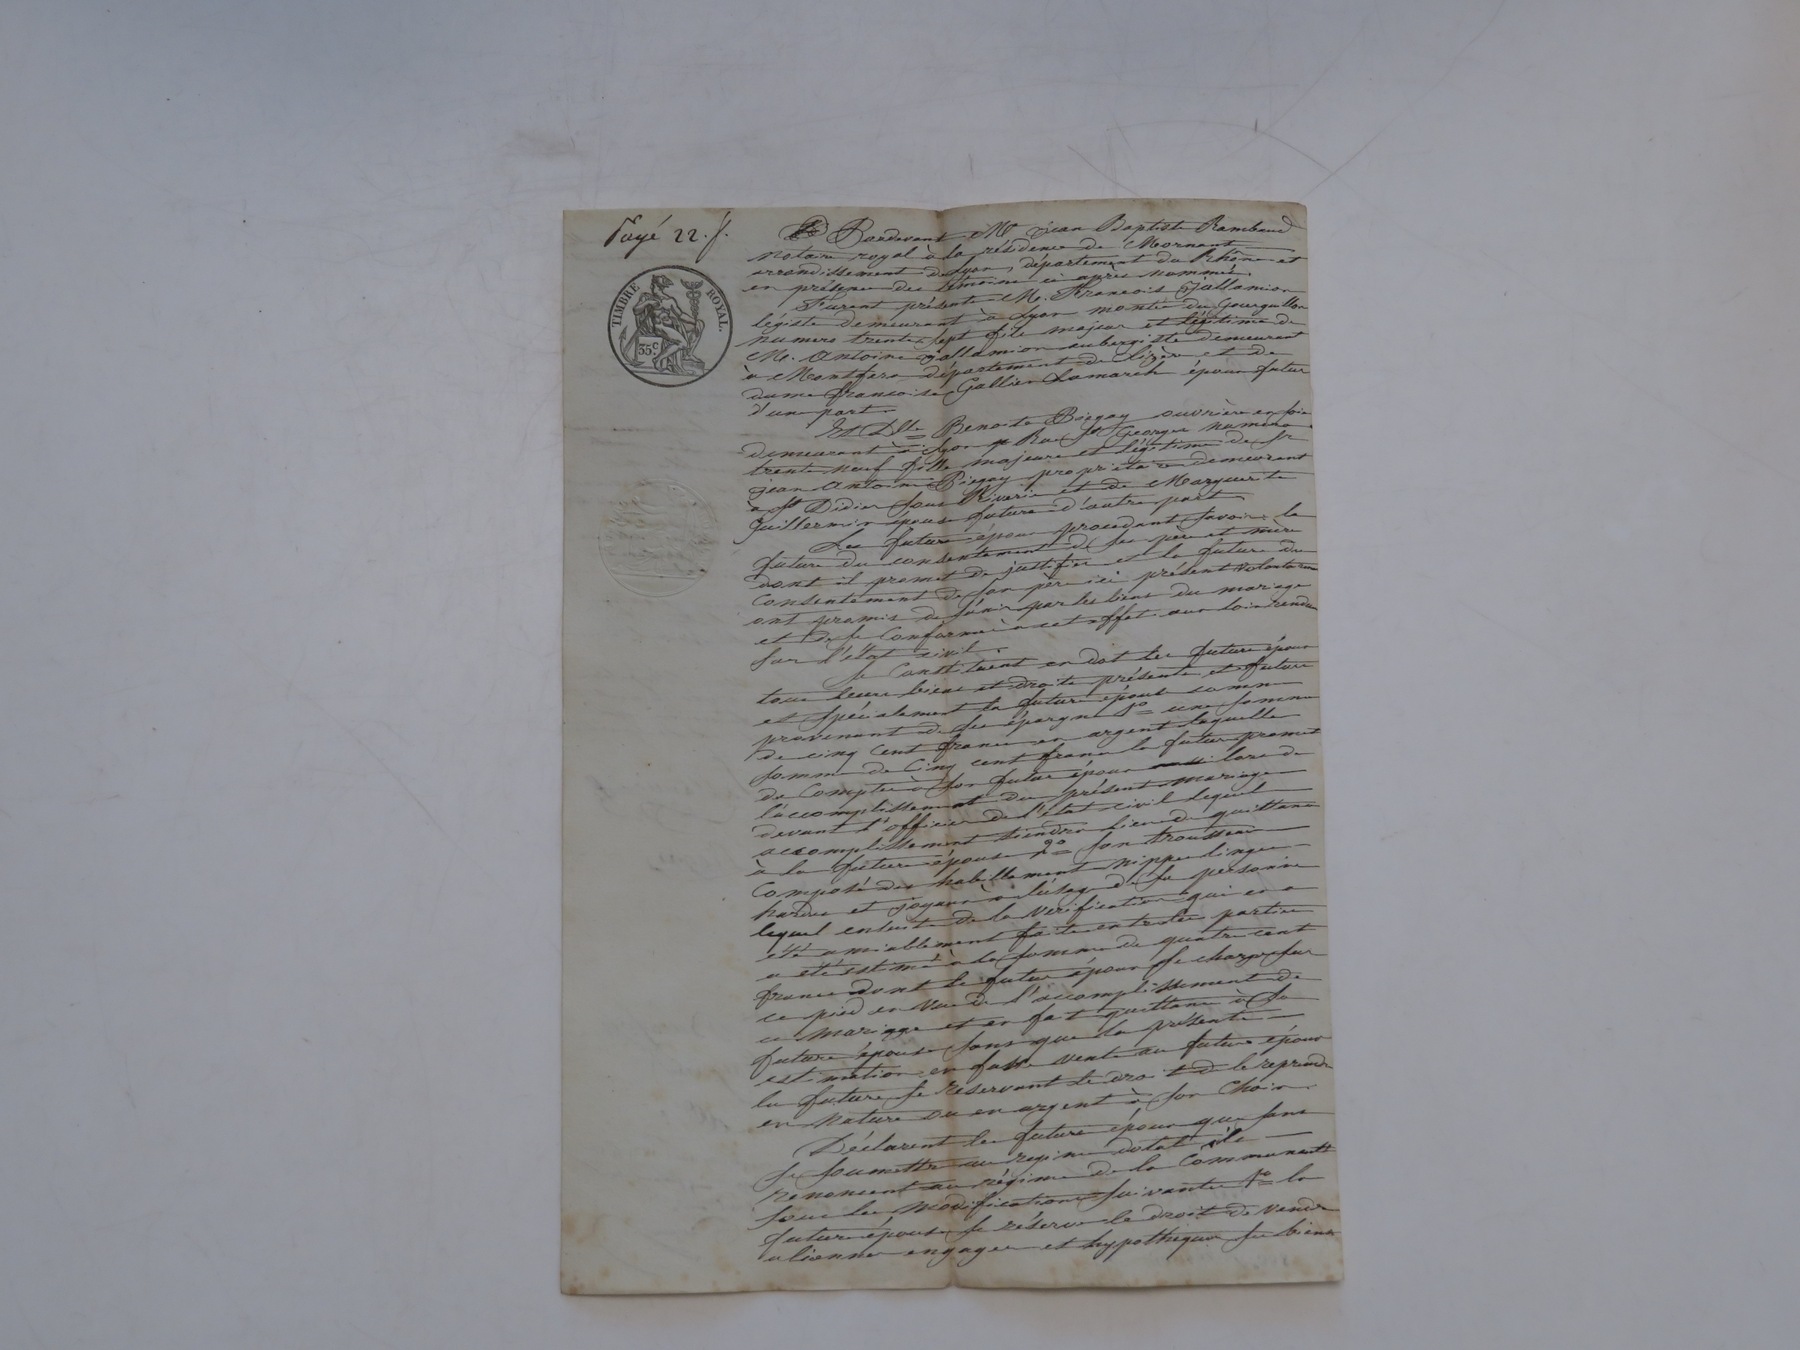 Payé 22. f.
TIMBRE ROYAL.
35.c
Pardevant Me Jean Baptiste Rambaud
Notaire royal à la résidence de Mornant
arrondissement de Lyon, département du Rhône et
en présence des témoins ci après nommés.
Furent présents M. François Jallamion
légiste demeurant à Lyon montée du Gourguillon
numero trente sept fils majeur et légitime de
M. Antoine Jallamion aubergiste demeurant
à département de lizère et de
dame francoise Gallien Lamarch époux futur
d'une part.
Et Dlle Benoite Piegay ouvrière en soie
demeurant à Lyon Rue St Georges numéro
trente neuf fille majeure et légitime de Sr
jean Antoine Piegay propriétaire demeurant
à St Didier sous Riverie et de Marguerite
Guillermin épouse future d'autre part
Les futurs époux procédant savoir le
futur du consentement de ses père et mère
dont il promet de justifier et la future du
consentement de son père ici présent volontairement
ont promis de s'unir par les liens du mariage
et de se conformer à cet effet aux lois rendues
sur l'état civil.
Se constituent en dot les futurs époux
tous leurs biens et droits présents et futurs
et spécialement la future épouse comme
provenant de ses épargnes 1o une somme
de cinq cent francs en argent laquelle
somme de cinq cent francs la future promet
de compter à son futur époux lors de
l'accomplissement du présent mariage
devant l'officier de l'état civil lequel
accomplissement tiendra lieu de quittance
à la future épouse 2o son trousseau
composé des habillements nippes linges
hardes et joyaux à l'usage de sa personne
lequel ensuite de la vérification qui en a
été amiablement faite entre les parties
a été estimé à la somme de quatre cent
francs dont le futur époux se charge sur
ce pied en vue de l'accomplissement de
ce mariage et en fait quittance à sa
future épouse sans que la présente
estimation en fasse vente au futur époux
la future se réservant le droit de le reprendre
en nature ou en argent à son choix.
Déclarent les futurs époux que sans
se soumettre au régime dotal ils
renoncent au régime de la Communauté
sous les modifications suivantes 1o la
future épouse se réserve le droit de vendre
aliéner engager et hypothéquer ses biens